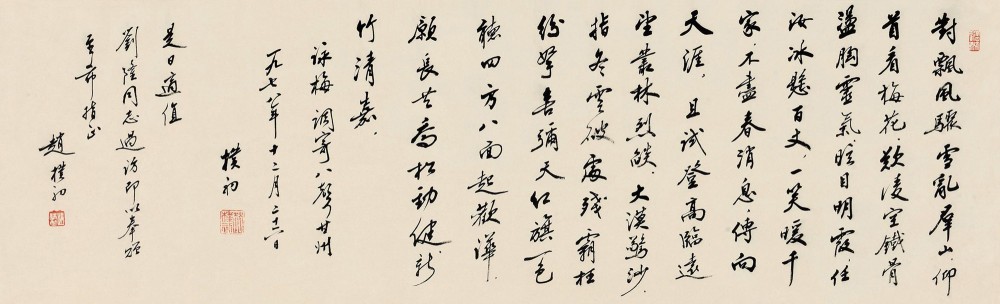 對飄風驟雪亂群山，仰
首看梅花。歎凌空鐵骨，
盪胸靈氣，眩目明霞。任
汝冰懸百丈，一笑暖千
家。不盡春消息，傳向
天涯。且試登高臨遠，
望叢林烈燄，大漠驚沙。
指冬雲破處，殘霸枉
紛拏。吾彌天紅旗一色，
聽四方八面起歡譁。
願長共喬松勁健，新
竹清嘉。
詠梅 調寄八聲甘州
一九七八年十二月二十六日
樸初
是日適值
劉隆同志過訪即以奉貽
並希指正
趙樸初